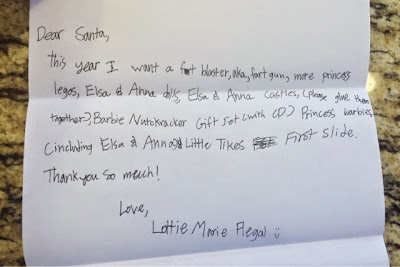 Dear Santa,
This year I want a fart blaster, aka, fart gun, more princess
legos, Elsa & Anna dolls, Elsa & Anna castles, (please glue them
together), Barbie Nutcracker Gift Set (with CD) Princess barbies
(including Elsa & Anna) & Little Tikes First Slide.
Thank you so much!
Love,
Lottie Marie Flegal :)